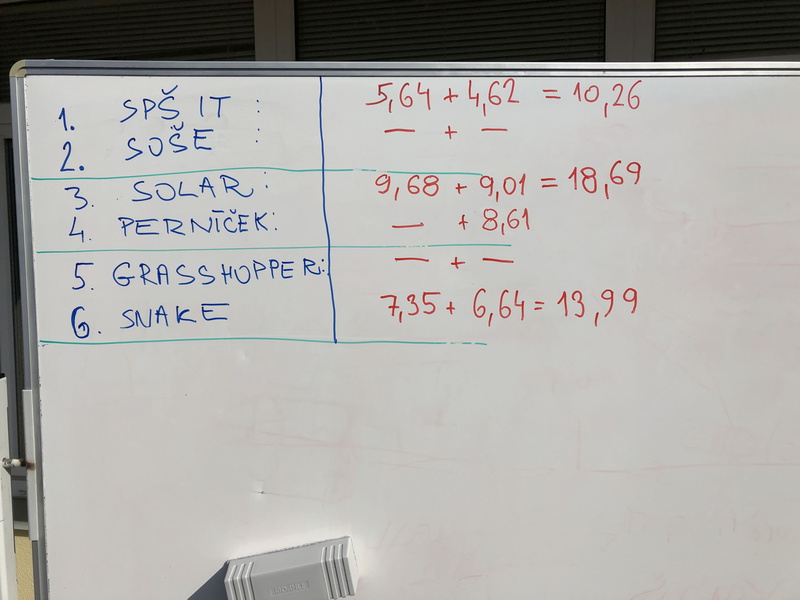 1. SPŠ IT : 5,64 + 4,62 = 10,26
2. SOŠE : — + —
3. SOLAR : 9,68 + 9,01 = 18,69
4. PERNÍČEK: — + 8,61
5. GRASSHOPPER: — + —
6. SNAKE 7,35 + 6,64 = 13,99